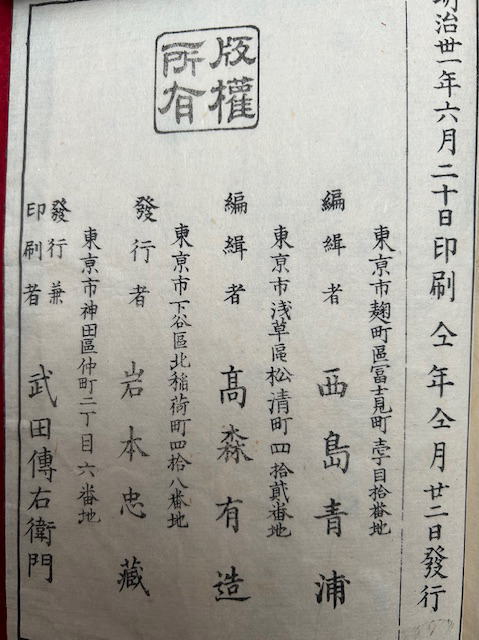 明治丗一年六月二十日印刷仝年仝月廿二日發行
版權
所有
東京市麹町區富士見町壹丁目拾番地
編緝者 西島青浦
東京市浅草區松清町四拾貳番地
編緝者 高森有造
東京市下谷區北稲荷町四拾八番地
發行者 岩本忠藏
東京市神田區仲町二丁目六番地
發行兼
印刷者 武田傳右衛門